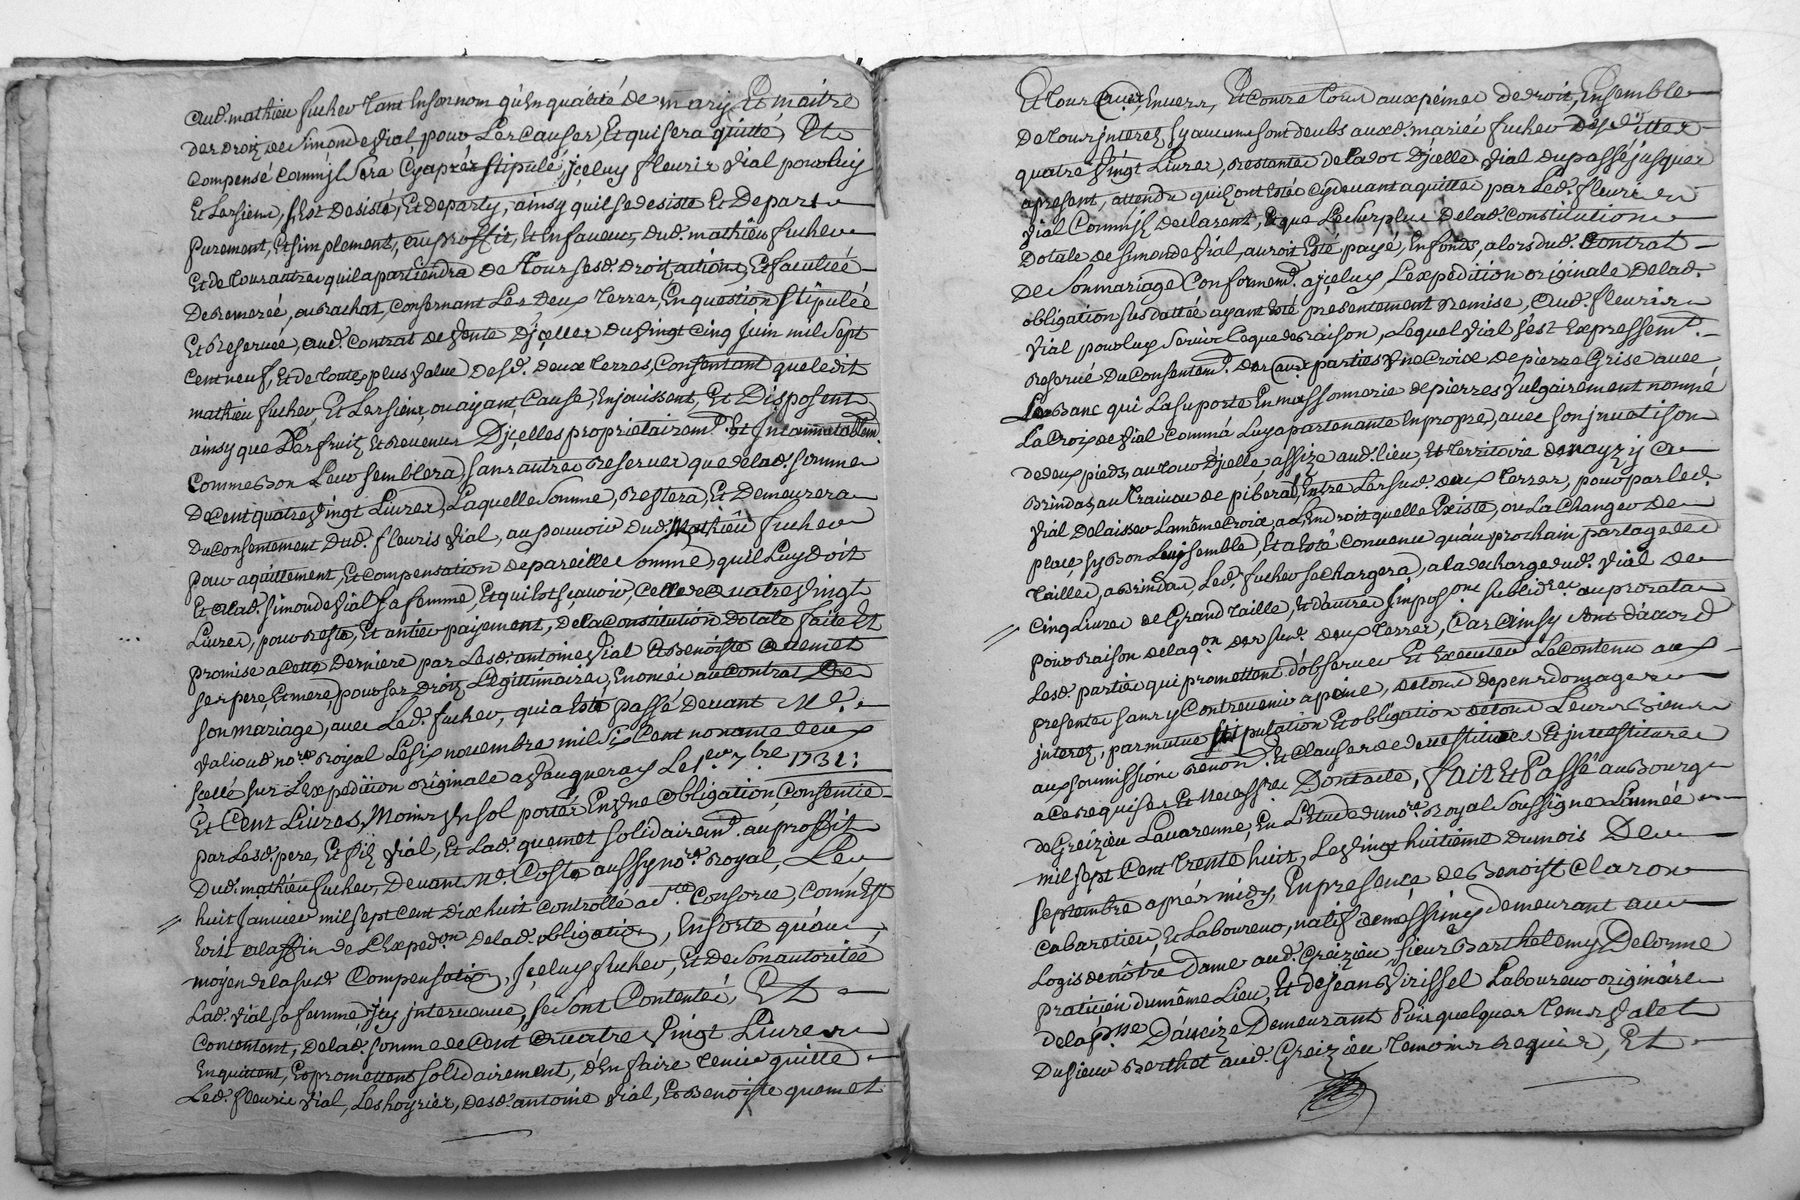 aud. mathieu fucher tant en son nom qu'en qualité de mary Et maitre
des droiz de Simonde Vial, pour Les Causes, Et qui sera quitté, Et
Compensé Comm'jl Sera Cyaprés stipulé, jçeluy fleurir Vial pour luy
Et Les siens, s'Est desisté, Et departy, ainsy qu'il se desiste Et Depart
purement, Et simplement, au proffit, Et En faveur, dud. mathieu fucher
Et de tous autres qu'il apartiendra de tous sesd. droiz actions, Et facultéé
De remeréé, ou Rachat, Consernant Les Deux terres En question stipuléé
Et Reservée, aud. Contrat de Vente D'jçelles du Vingt Cinq juin mil Sept
Cent neuf, Et de toute plus Value desd. deux terres, Consentant que ledit
mathieu fucher, Et Les siens, ou ayant Cause, En jouissent, Et Disposent
ainsy que Des fruiz Et Revenus D'jçelles proprietairemt. Et Incommutablem.
Comme Bon Leur semblera, sans autres Reserves que de lad. somme
De Cent quatre Vingt Livres, Laquelle Somme, Restera, Et Demeurera
Du Consentement Dud. fleuris Vial, au pouvoir dud. Mathieu fucher
pour aquittement, Et Compensation de pareille somme qu'il Luy doit
Et a lad. simonde Vial sa femme, Et qui Est sçavoir, Celle de quatre Vingt
Livres, pour Reste, Et antier payement, de la Constitution dotale faite Et
promise a Cette Derniere par Lesd. antoine Vial Et Benoiste quemet
ses pere, Et mere, pour ses Droiz Legittimaires, Enoncée au Contrat De
son mariage, avec Led. fucher, qui a Esté passé devant Me.
Valioud nore. Royal Le six novembre mil Six Cent nonante deux
sçellé sur L'Expedition originale a Vaugneray Le 1er. 7bre 1731;
Et Cent Livres, Moins Vn sol portés En Vne obligation, Consentie
par Lesd. pere, Et fils Vial, Et Lad. quemet solidairemt. au proffit
Dud. mathieu fucher, Devant Me. Coste aussy nore. Royal, Le
huit Janvier mil sept Cent dix huit Controllé a Ste. Consorce, Comm'Est
Ecrit a la fin de L'Exped.on de lad. obligation, En sorte qu'au
moyen de la sud. Compensation, Jçeluy fucher, Et de son autoritéé
Lad. Vial sa femme, Jcy jntervenue, se sont Contentés, Et
Contentent, de lad. somme de Cent quatre Vingt Livres
En quittent, Et promettent solidairement, d'En faire tenir quitte
Led. fleurir Vial, Les hoyrier, desd. antoine Vial, Et Benoiste quemet
Et tous Envers, Et Contre tous aux peines de droit, Ensemble
De tous jnterez sy aucuns sont deubs aux d. mariés fucher Desd. ittes
quatre Vingt Livres, Restantes de la dot D'jçelle Vial du passé jusques
apresent, attendu qu'ils ont Estés cy devant aquittés par Led. fleurir
Vial Comm'jls declarent, Et que Le surplus de lad. Constitution
Dotale de simonde Vial, auroit Esté payé, En fonds, alors dud. Contrat
De Son mariage Conformemt. a jçeluy, L'expedition originale de lad.
obligation sus dattée ayant Eté presentement Remise, aud. fleurir
Vial pour luy servir Ce que de Raison, Lequel Vial s'est Expressemt.
Reservé du Consentemt. des parties Vne Croix de pierre Grise avec
Le Banc qui La suporte En massonnerie de pierres Vulgairement nommé
La Croix de Vial Comm'a Luy apartenante En propre, avec son jnvestison
de deux pieds au tour D'jçelle, assize aud. lieu, Et territoire de
Brindas, au traivou de piberat, Entre Les sud. deux terres, pour par led.
Vial De laisser La même Croix, a L'Endroit quelle Existe, ou La Changer de
place sy Bon Luy semble, Et a Esté Convenu qu'au prochain partage des
tailles, a Brindas, Led. fucher se Chargera, a la decharge dud. Vial de
Cinq Livres de Grand taille, Et d'autres Impos.ons au prorata
pour Raison de laq.on des sud. deux terres, Car ainsy sont d'acord
Lesd. parties qui promettent d'observer Et Executer Le Contenu aux
presentes sans y Contrevenir a peine, de tous depens domages
jnterez, par mutue stipulation Et obligation de tous Leurs Biens
aux soumissions Renon. Et Clauses de devestitures Et jnvestitures
a Ce requises Et Necessres. Dont acte, fait Et Passé au Bourg
de Greizieu Lavarenne, En L'Etude du nore. Royal Soussigné L'année
mil sept Cent trente huit, Le Vingt huitième du mois De
septembre aprés midy, En presence de Benoist Claron
Cabaretier, Et Laboureur, natif de messimy demeurant au
Logis de nôtre Dame aud. Greizieu, sieur Barthelemy Delorme
praticien du même Lieu, Et de jean Virissel Laboureur originaire
de la psse D'auxize Demeurant Puis quelques tems Valet
Du sieur Berthet aud. Greizieu temoins requis, Et